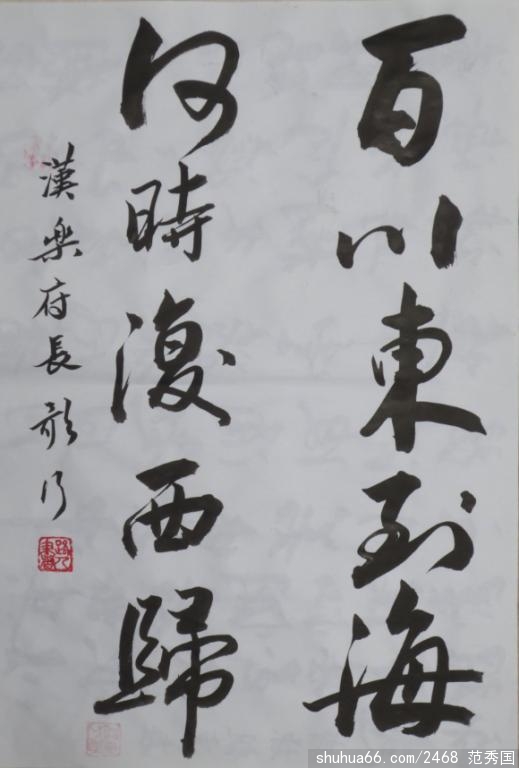 百川東到海
何時復西歸
漢樂府長歌行
shuhua66.com/2468 范秀国